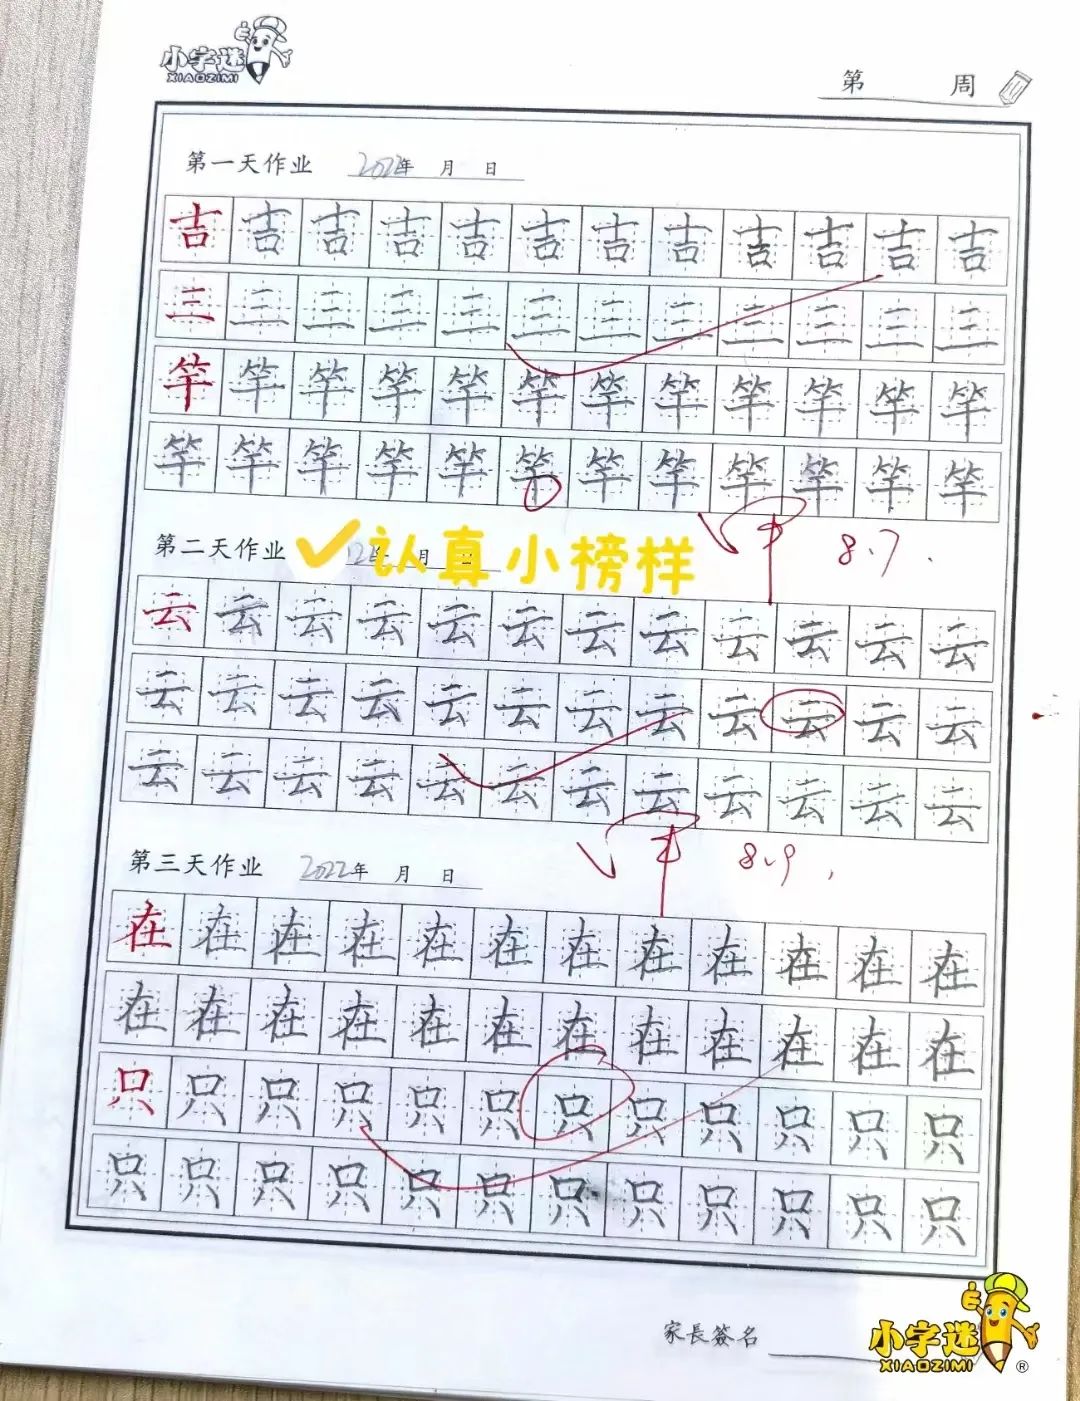 小字迷
XIAOZIMI
第 周
第一天作业 2022年 月 日
吉吉吉吉吉吉吉吉吉吉吉吉
三三三三三三三三三三三三
竿竿竿竿竿竿竿竿竿竿竿竿
竿竿竿竿竿竿竿竿竿竿竿竿
8.7.
第二天作业 年 月 日
认真小榜样
云云云云云云云云云云云云
云云云云云云云云云云云云
云云云云云云云云云云云云
8.9.
第三天作业 2022年 月 日
在在在在在在在在在在在在
在在在在在在在在在在在在
只只只只只只只只只只只只
只只只只只只只只只只只只
家長簽名
小字迷
XIAOZIMI®